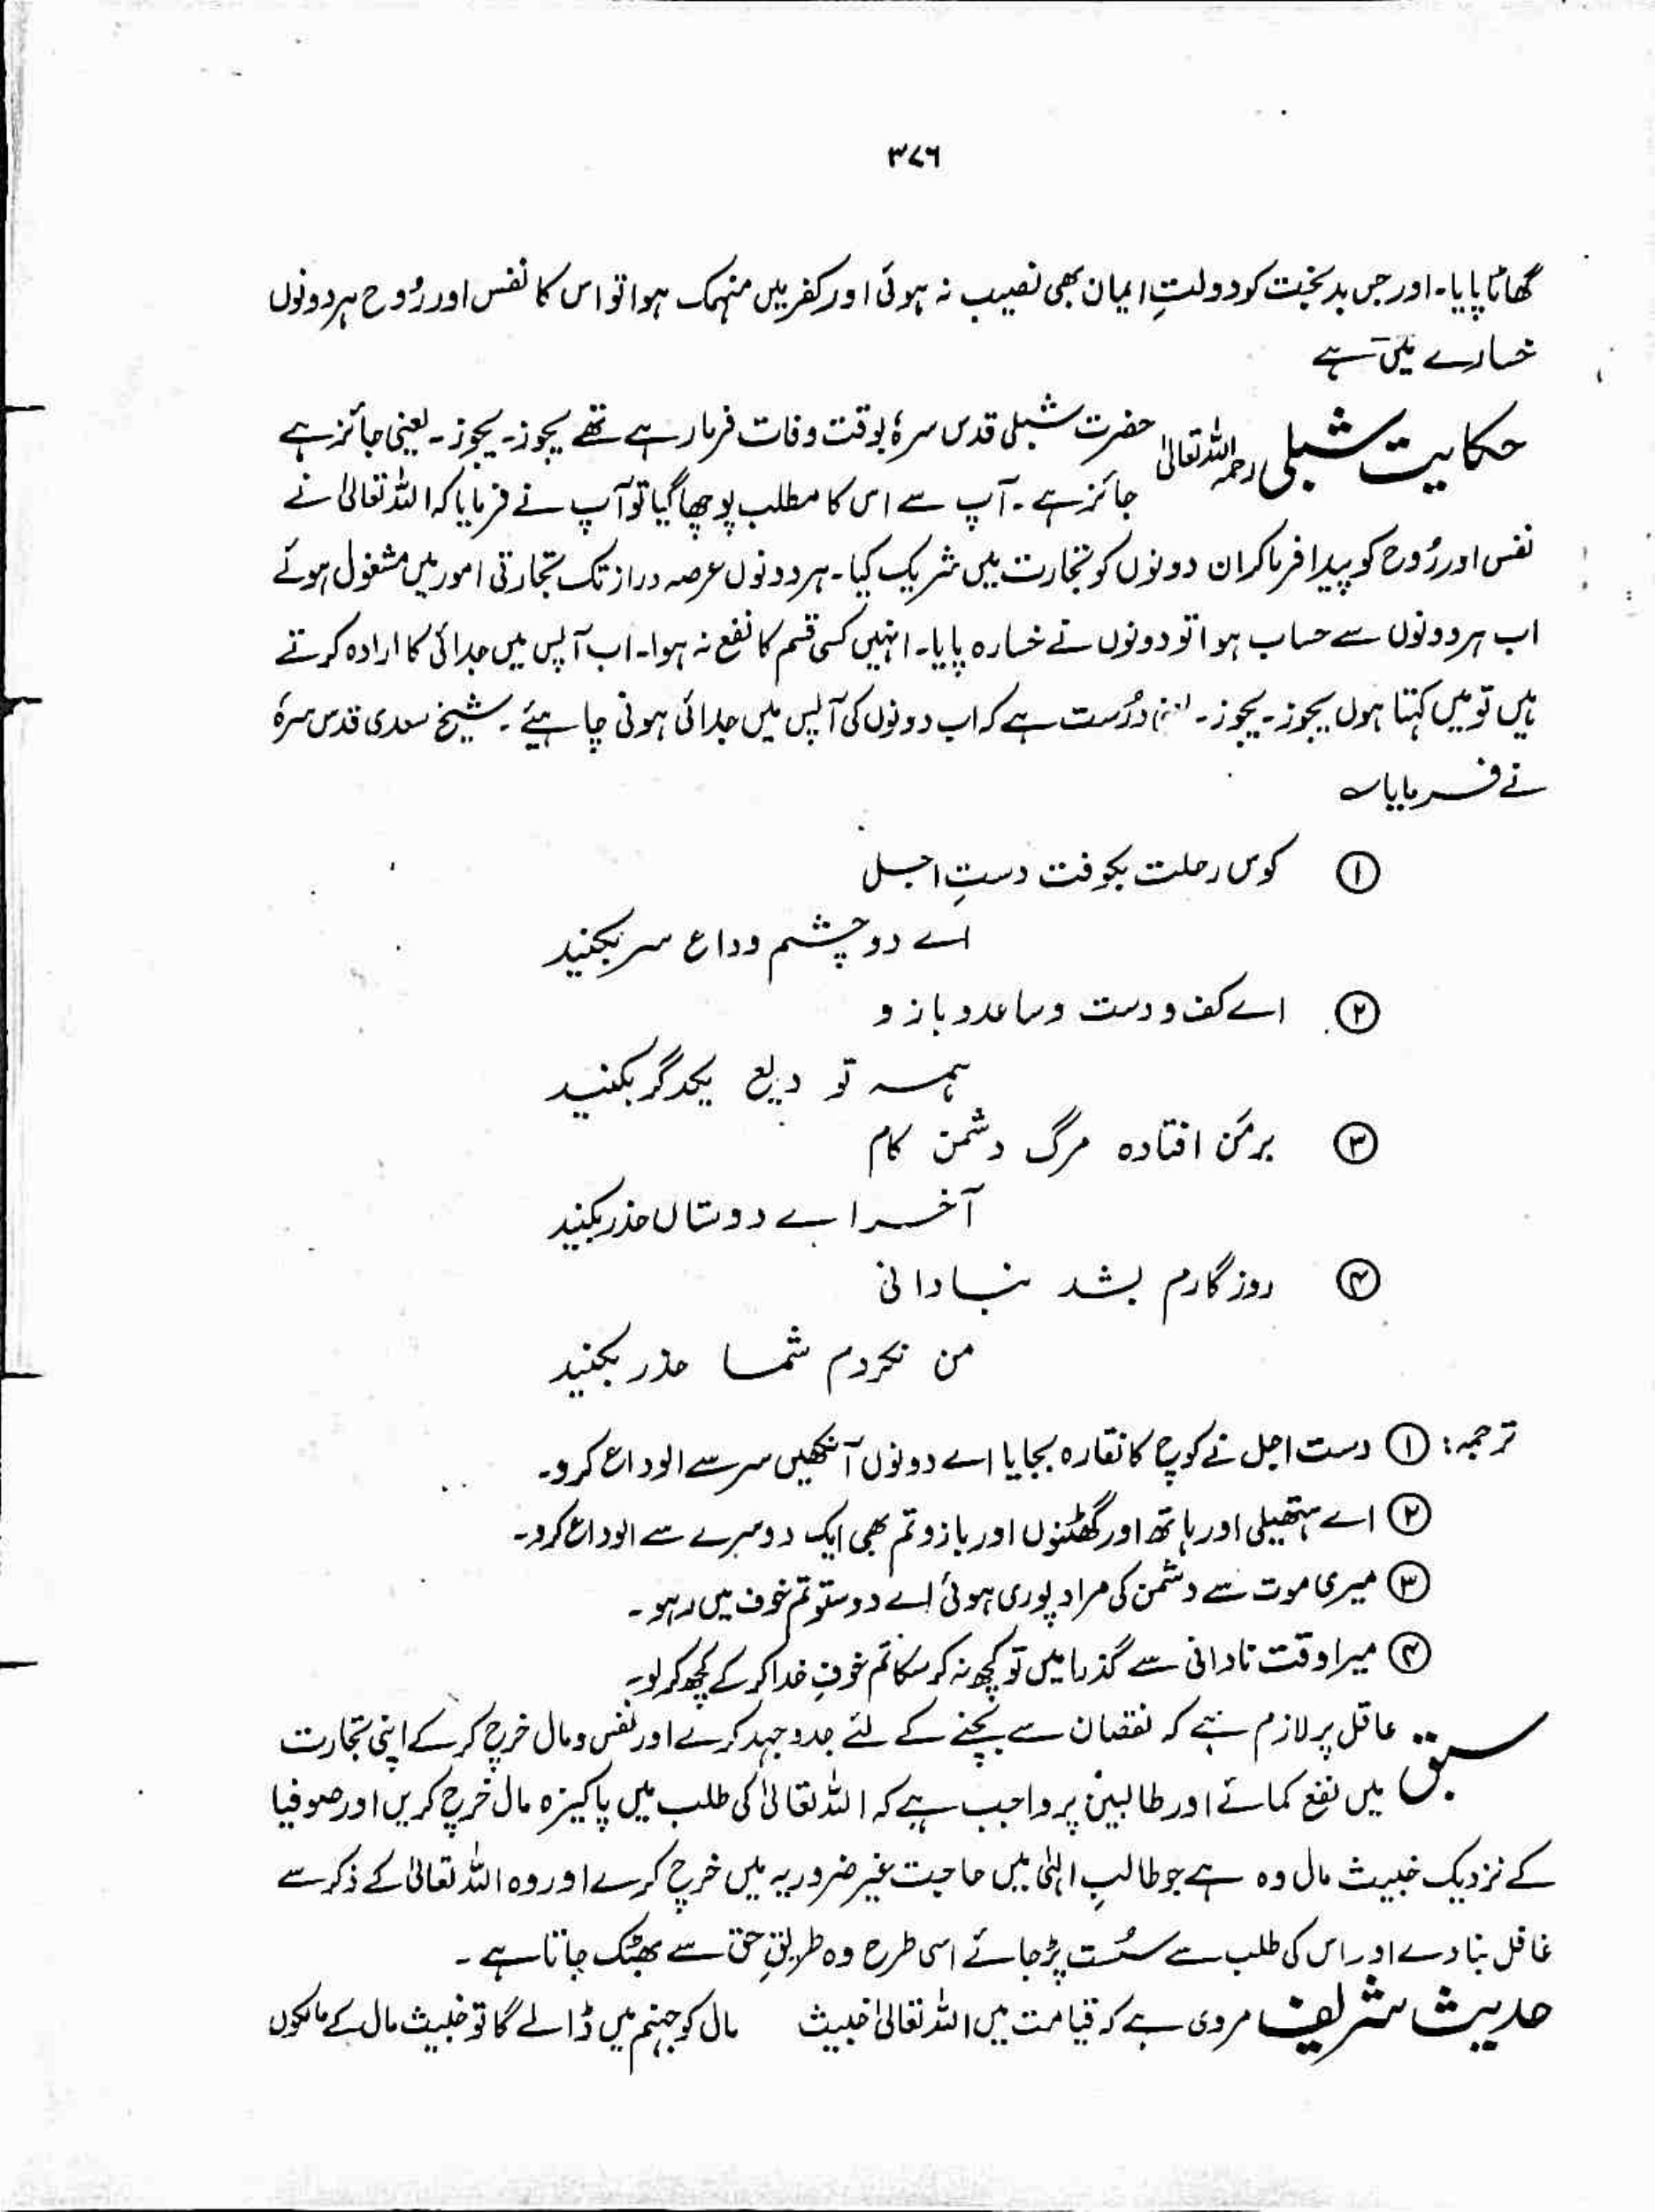 ۳۷۶
گھاٹا پایا۔ اور جس بدبخت کو دولتِ ایمان بھی نصیب نہ ہوئی اور کفر میں منہمک ہوا تو اس کا نفس اور رُوح ہر دونوں
خسارے میں ہے
حکایت شبلی رحمہ اللہ تعالیٰ حضرت شبلی قدس سرہٗ بوقت وفات فرما رہے تھے یجوز۔ یجوز۔ یعنی جائز ہے
جائز ہے۔ آپ سے اس کا مطلب پوچھا گیا تو آپ نے فرمایا کہ اللہ تعالیٰ نے
نفس اور رُوح کو پیدا فرما کر ان دونوں کو تجارت میں شریک کیا۔ ہر دونوں عرصہ دراز تک تجارتی امور میں مشغول ہوئے
اب ہر دونوں سے حساب ہوا تو دونوں نے خسارہ پایا۔ انہیں کسی قسم کا نفع نہ ہوا۔ اب آپس میں جدائی کا ارادہ کرتے
ہیں تو میں کہتا ہوں یجوز۔ یجوز۔ یعنی درُست ہے کہ اب دونوں کی آپس میں جدائی ہونی چاہیئے۔ شیخ سعدی قدس سرہٗ
نے فرمایا ؎
① کوس رحلت بکوفت دستِ اجل
اے دو چشم وداع سر بکنید
② اے کف و دست و ساعد و بازو
ہمہ تو دیع یکدگر بکنید
③ بر من افتادہ مرگ دشمن کام
آخر اے دوستاں حذر بکنید
④ روزگارم بشد بنادانی
من نکردم شما حذر بکنید
ترجمہ: ① دست اجل نے کوچ کا نقارہ بجایا اے دونوں آنکھیں سر سے الوداع کرو۔
② اے ہتھیلی اور ہاتھ اور گھٹنوں اور بازو تم بھی ایک دوسرے سے الوداع کرو۔
③ میری موت سے دشمن کی مراد پوری ہوئی اے دوستو تم خوف میں رہو۔
④ میرا وقت نادانی سے گذرا میں تو کچھ نہ کر سکا تم خوفِ خدا کر کے کچھ کر لو۔
سبق عاقل پر لازم ہے کہ نقصان سے بچنے کے لئے جدوجہد کرے اور نفس و مال خرچ کر کے اپنی تجارت
میں نفع کمائے اور طالبین پر واجب ہے کہ اللہ تعالیٰ کی طلب میں پاکیزہ مال خرچ کریں اور صوفیا
کے نزدیک خبیث مال وہ ہے جو طالبِ الٰہی میں حاجت غیر ضروریہ میں خرچ کرے اور وہ اللہ تعالیٰ کے ذکر سے
غافل بنا دے اور اس کی طلب سے سُست پڑ جائے اسی طرح وہ طریقِ حق سے بھٹک جاتا ہے۔
حدیث شریف مروی ہے کہ قیامت میں اللہ تعالیٰ خبیث مال کو جہنم میں ڈالے گا تو خبیث مال کے مالکوں